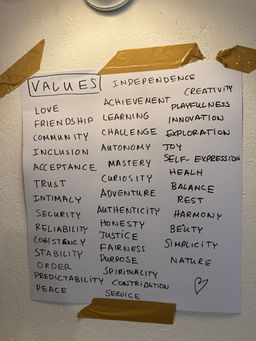 VALUES
LOVE
FRIENDSHIP
COMMUNITY
INCLUSION
ACCEPTANCE
TRUST
INTIMACY
SECURITY
RELIABILITY
COSISTENCY
STABILITY
ORDER
PREDICTABILITY
PEACE
INDEPENDENCE
ACHIEVEMENT
LEARNING
CHALLENGE
AUTONOMY
MASTERY
CURIOSITY
ADVENTURE
AUTHENTICITY
HONESTY
JUSTICE
FAIRNESS
PURPOSE
SPIRITUALITY
CONTRIBUTION
SERVICE
CREATIVITY
PLAYFULNESS
INNOVATION
EXPLORATION
JOY
SELF-EXPRESSION
HEALH
BALANCE
REST
HARMONY
BEUTY
SIMPLICITY
NATURE